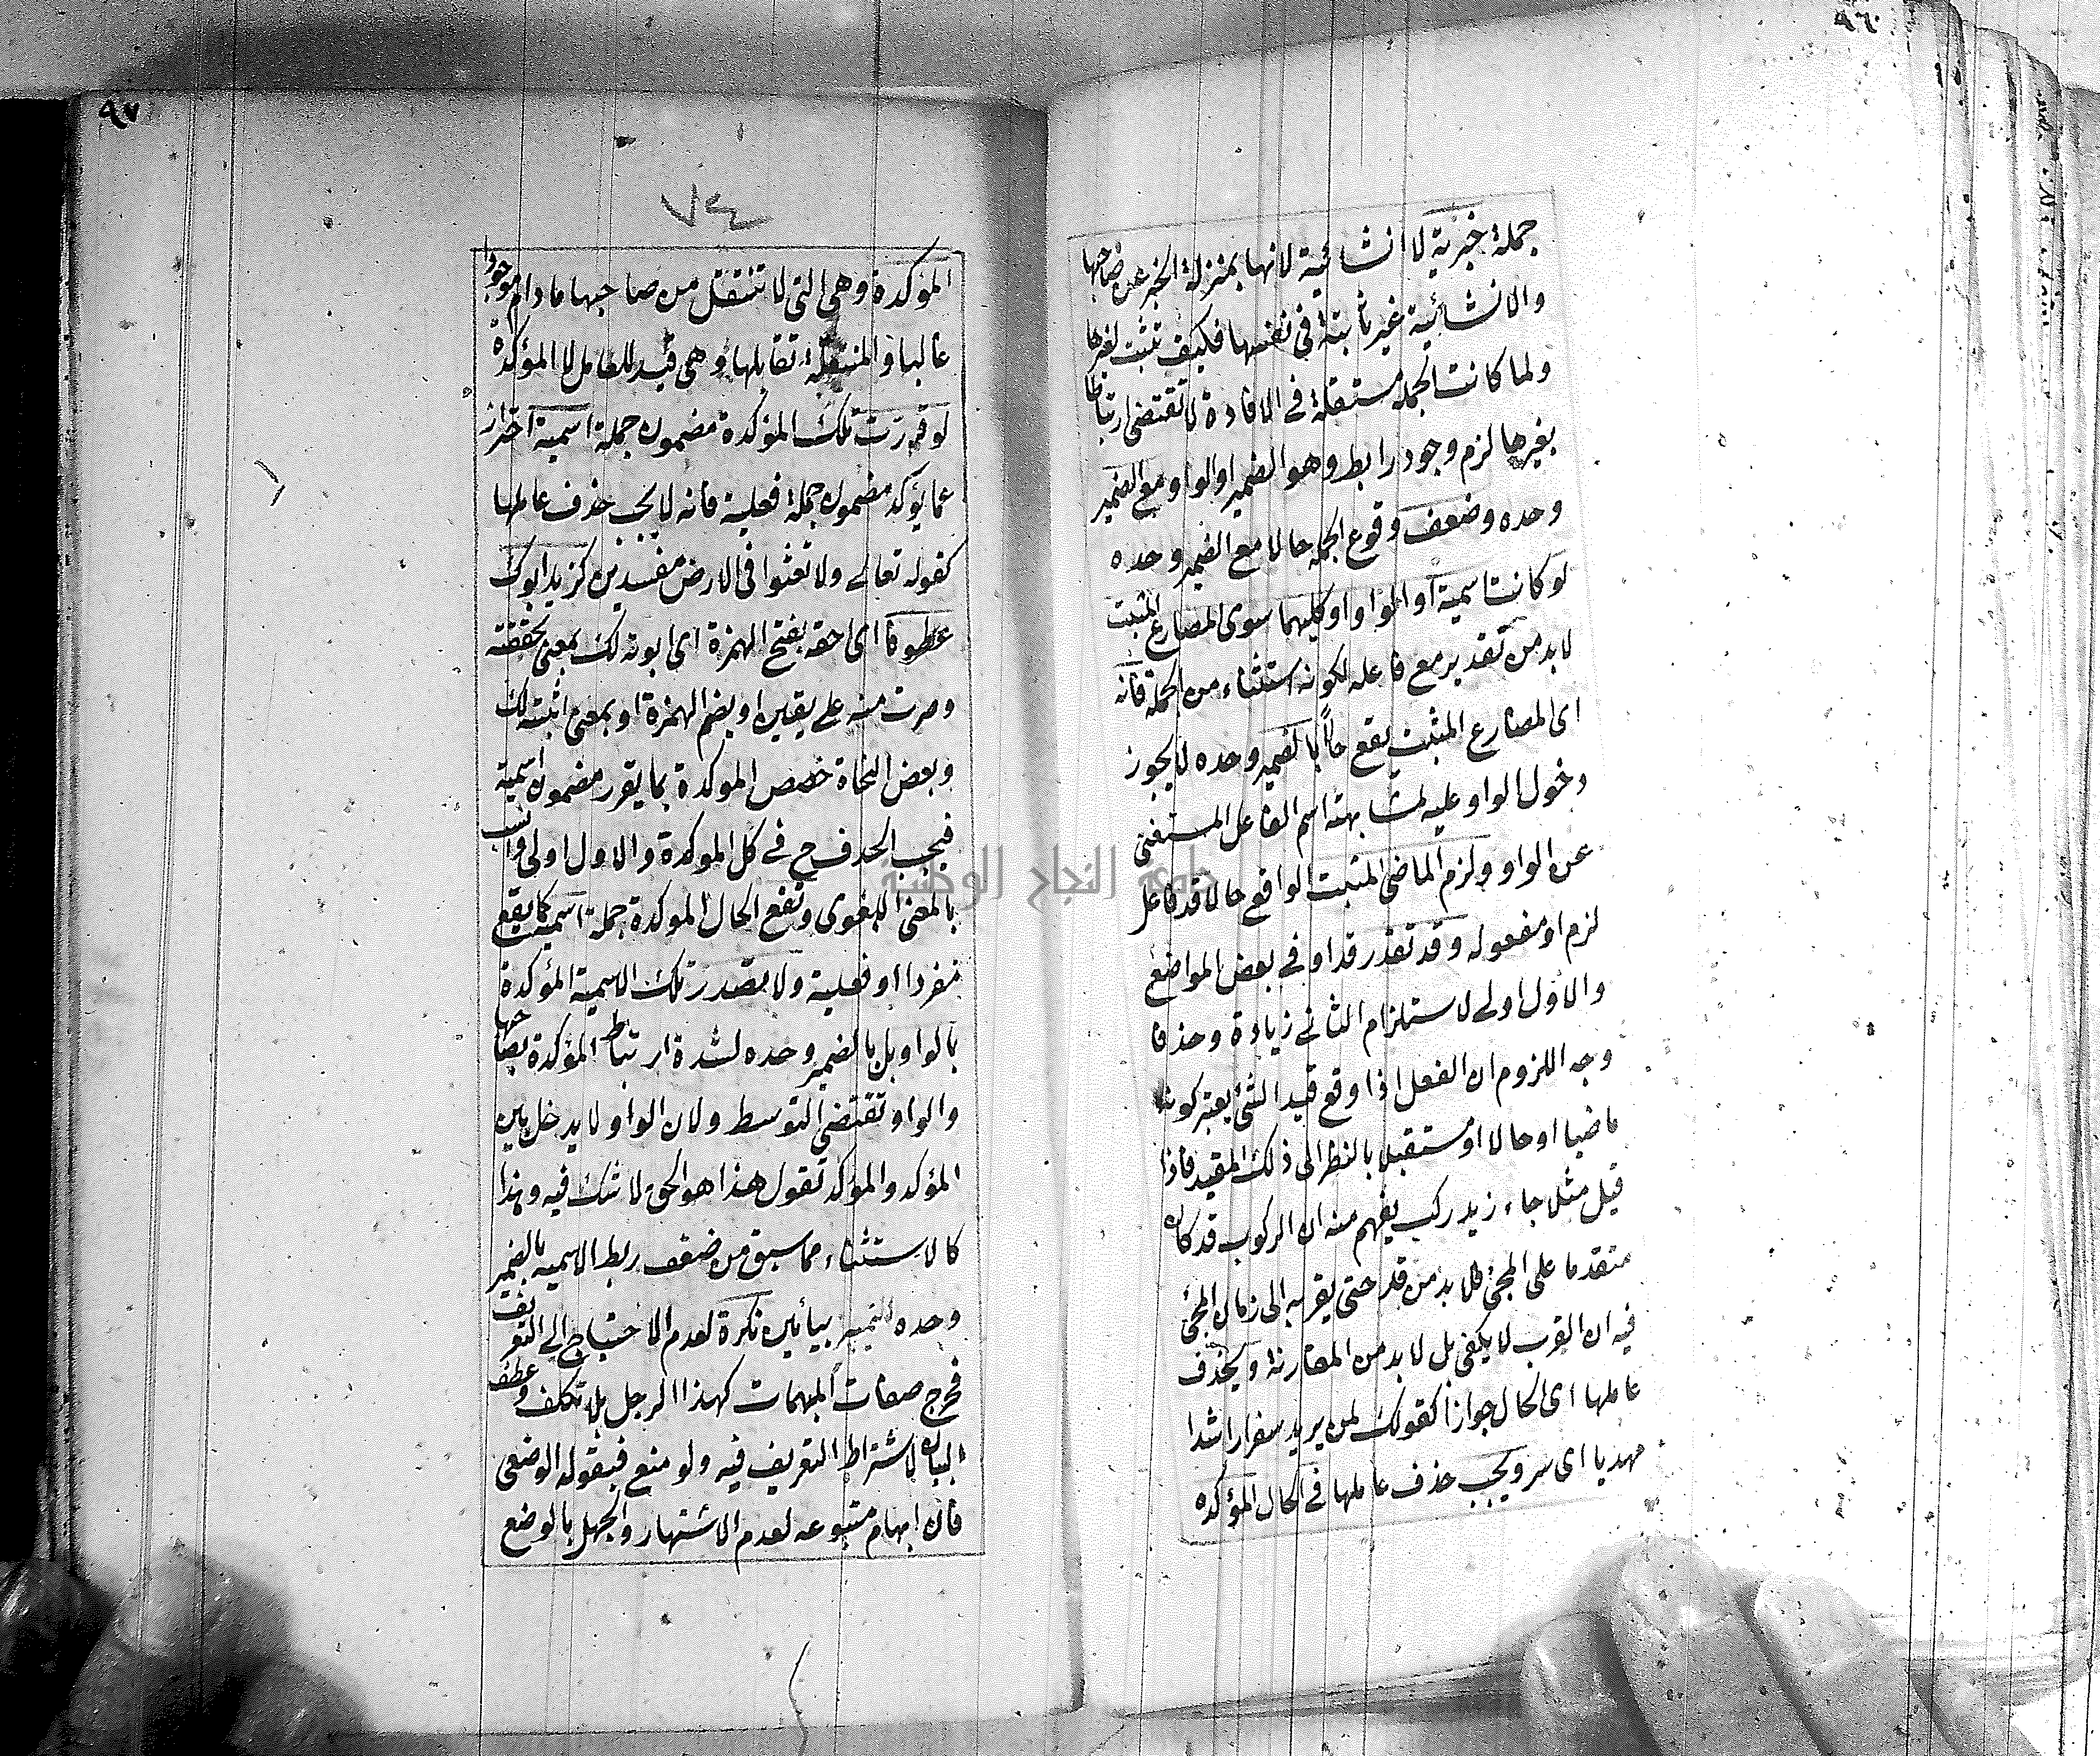 ٩٦
جملة خبرية لا انشائية لانها بمنزلة الخبر عن صاحبها
والانشائية غير ثابتة فى نفسها فكيف تثبت لغيرها
ولما كانت الجملة مستقلة فى الافادة لا تقتضى ارتباطا
بغيرها لزم وجود رابط وهو الضمير او الواو مع الضمير
وحده وضعف وقوع الجملة حالا مع الضمير وحده
لو كانت اسمية او الواو او كليهما سوى المضارع المثبت
لا بد من تقدير مع فاعله لكونه استثناء من الجملة فانه
اى المضارع المثبت يقع حالا بالضمير وحده لا يجوز
دخول الواو عليه لمشابهته اسم الفاعل المستغنى
عن الواو ولزم الماضى المثبت الواقع حالا قد فاعل
لزم او مفعوله وقد تقدر قد او فى بعض المواضع
والاول اولى لاستلزام الثانى زيادة وحذفا
وجه اللزوم ان الفعل اذا وقع قيد الشئ يعتبر كونه
ماضيا او حالا او مستقبلا بالنظر الى ذلك المقيد فاذا
قيل مثلا جاء زيد ركب يفهم منه ان الركوب قد كان
متقدما على المجئ فلا بد من قد حتى يقربه الى زمان المجئ
فيه ان القرب لا يكفى بل لا بد من المقارنة ويحذف
عاملها اى الحال جوازا كقولك لمن يريد سفرا راشدا
مهديا اى سر ويجب حذف عاملها فى الحال المؤكدة
٩٧
٧٤
المؤكدة وهى التى لا تنتقل من صاحبها مادام موجودا
غالبا والمنتقلة تقابلها وهى قيد للعامل لا المؤكدة
لو قررت تلك المؤكدة مضمون جملة اسمية احتراز
عما يؤكد مضمون جملة فعلية فانه لا يجب حذف عاملها
كقوله تعالى ولا تعثوا فى الارض مفسدين كزيد ابوك
عطوفا اى احقه بفتح الهمزة اى ابوته لك بمعنى تحققته
وصرت منه على يقين او بضم الهمزة او بمعنى اثبته لك
وبعض النحاة خصص الموكدة بما يقرر مضمون اسمية
فيجب الحذف ح فى كل الموكدة والاول اولى وانسب
بالمعنى اللغوى وتقع الحال الموكدة جملة اسمية كما يقع
مفردا او فعلية ولا تصدر تلك الاسمية المؤكدة
بالواو بل بالضمير وحده لشدة ارتباط المؤكدة بصاحبها
والواو تقتضى التوسط ولان الواو لا يدخل بين
المؤكد والمؤكد تقول هذا هو الحق لا شك فيه وهذا
كالاستثناء مما سبق من ضعف ربط الاسمية بالضمير
وحده التمييز بيأتين نكرة لعدم الاحتياج الى التعريف
فخرج صفات المبهمات كهذا الرجل بلا تكلف وعطف
البيان لاشتراط التعريف فيه ولو منع فبقوله الوضعى
فان ابهام متبوعه لعدم الاشتهار والجهل بالوضع
جامعة النجاح الوطنية